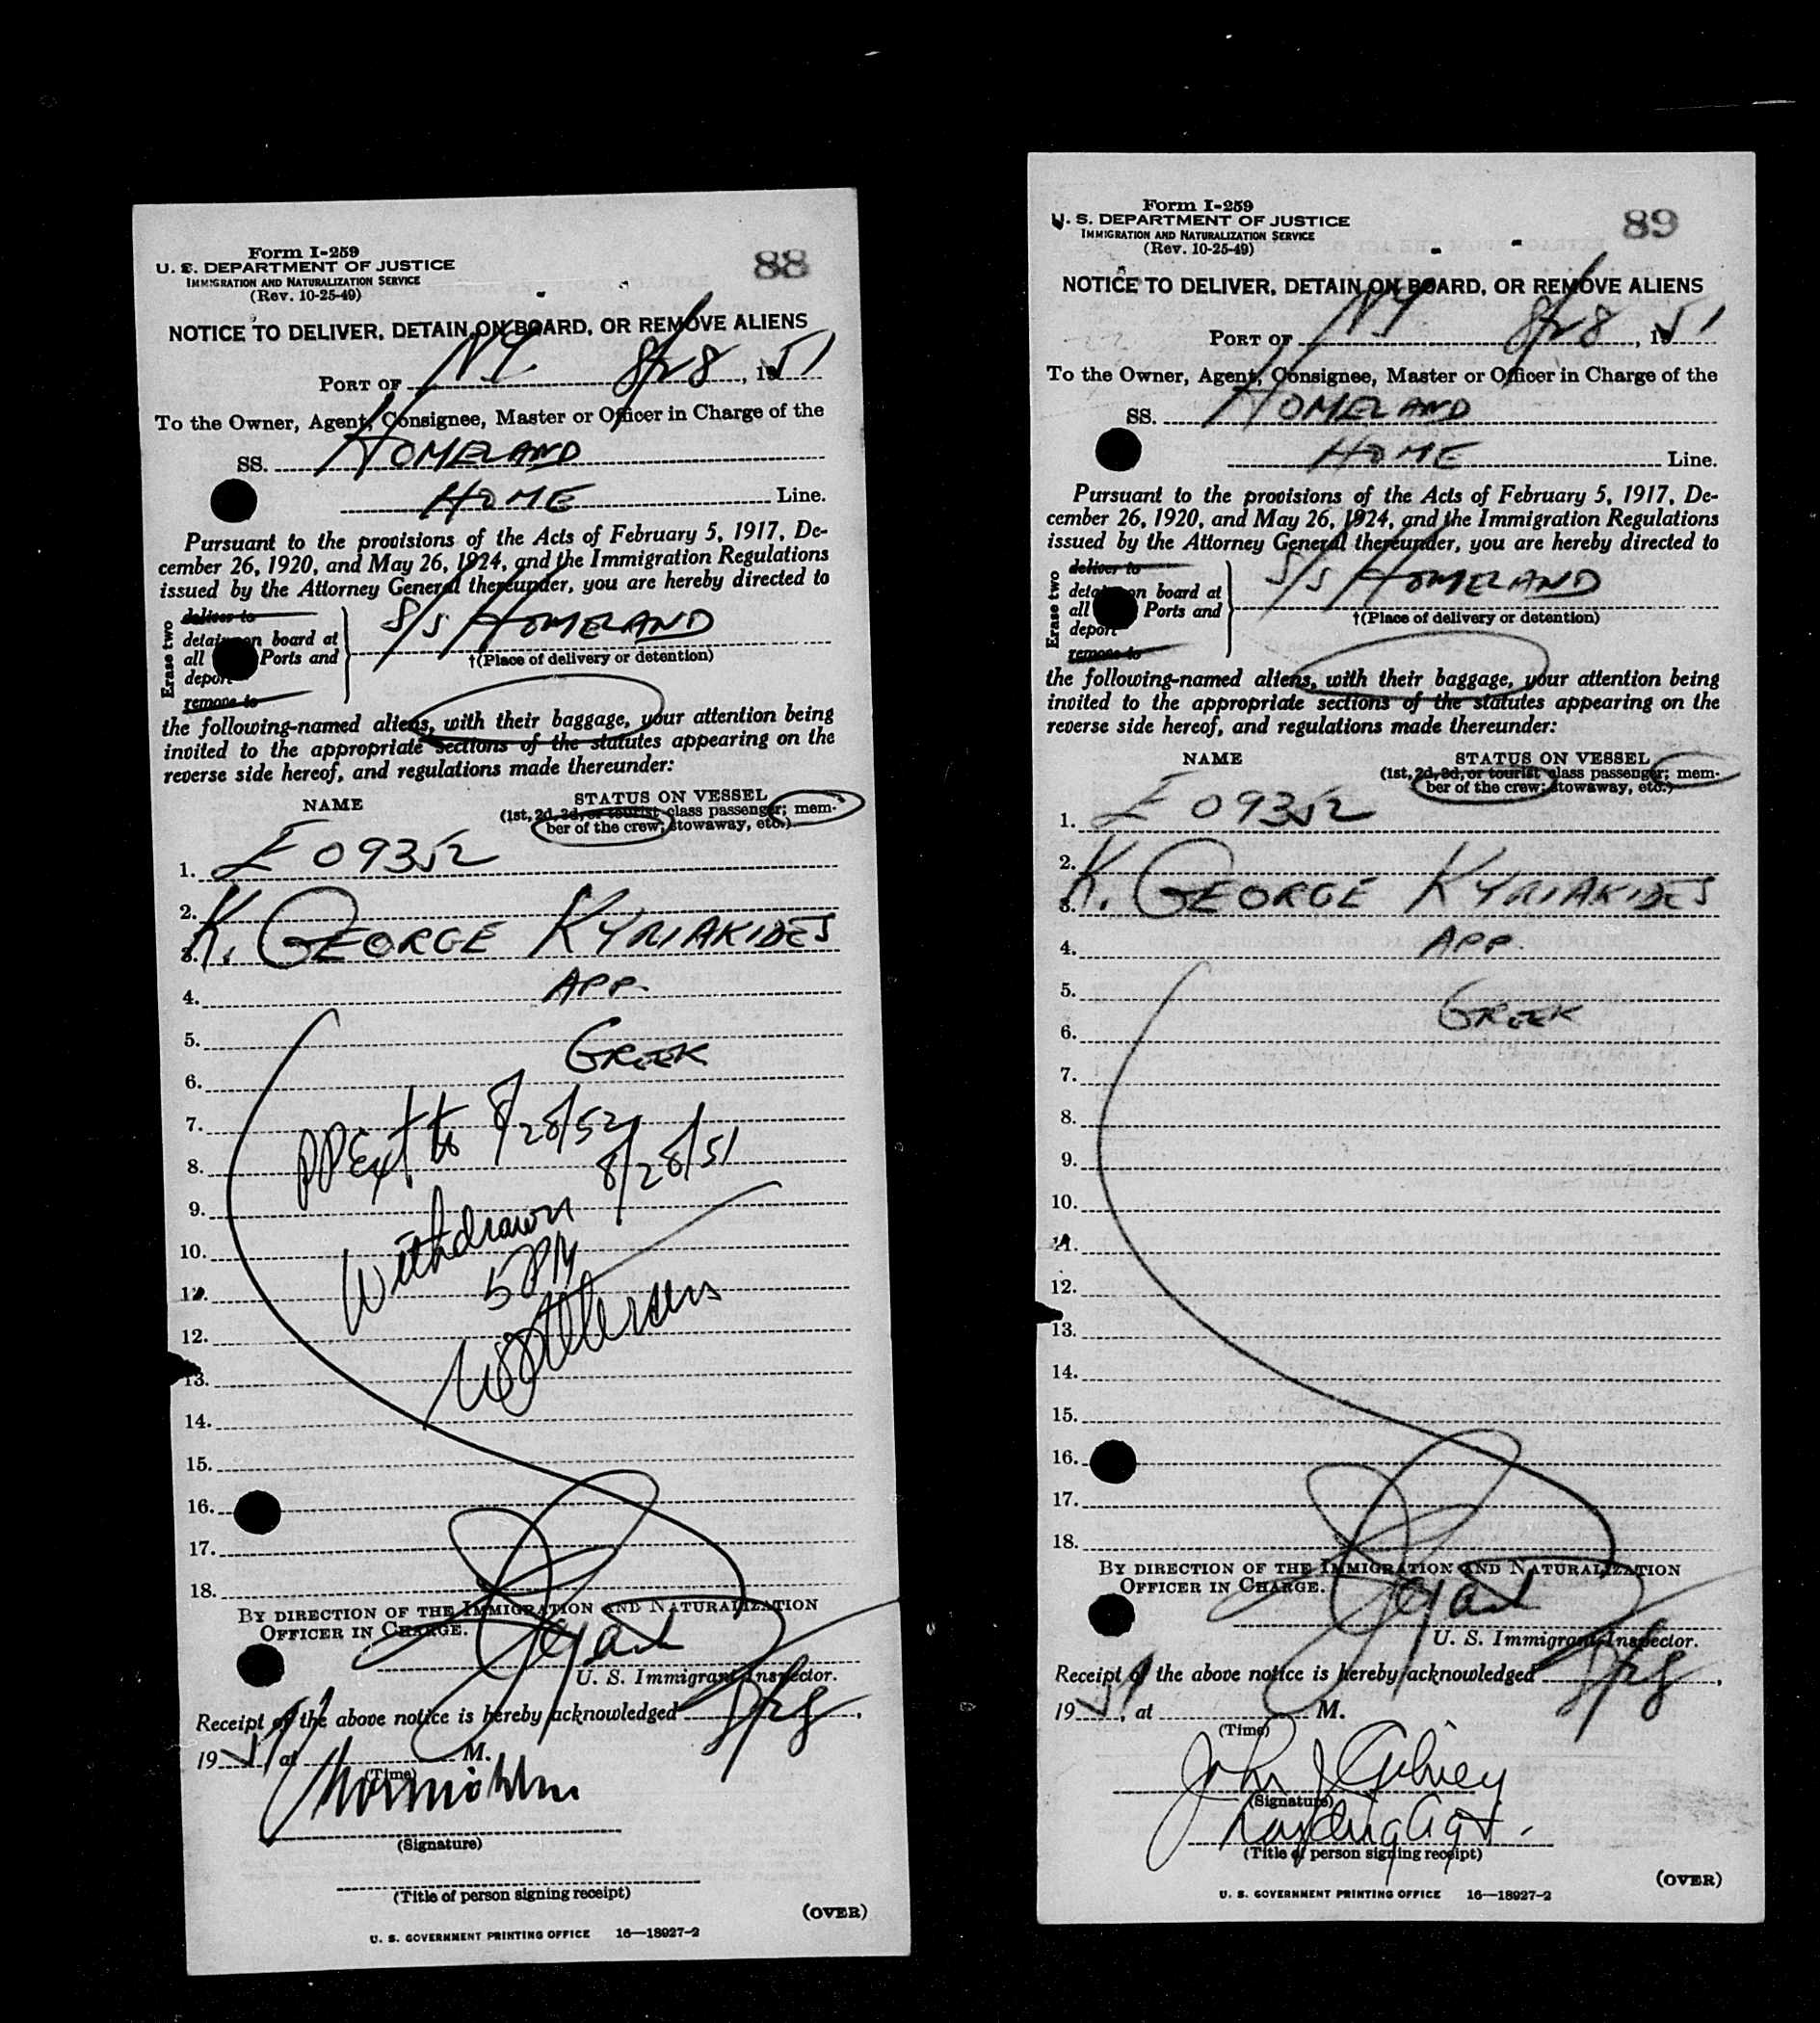 Form I-259
U. S. DEPARTMENT OF JUSTICE
IMMIGRATION AND NATURALIZATION SERVICE
(Rev. 10-25-49)
88
NOTICE TO DELIVER, DETAIN ON BOARD, OR REMOVE ALIENS
PORT OF NY 8/28, 1951
To the Owner, Agent, Consignee, Master or Officer in Charge of the
SS. HOMELAND
HOME Line.
Pursuant to the provisions of the Acts of February 5, 1917, De-
cember 26, 1920, and May 26, 1924, and the Immigration Regulations
issued by the Attorney General thereunder, you are hereby directed to
Erase two
deliver to
detain on board at
all Ports and
deport
remove to
S/S HOMELAND
†(Place of delivery or detention)
the following-named aliens, with their baggage, your attention being
invited to the appropriate sections of the statutes appearing on the
reverse side hereof, and regulations made thereunder:
NAME STATUS ON VESSEL
(1st, 2d, 3d, or tourist class passenger; mem-
ber of the crew; stowaway, etc.)
1. E 09352
2.
3. K. GEORGE KYRIAKIDES
4. APP.
5. GREEK
6.
7. PP Ext to 8/28/52
8. 8/28/51
9. Withdrawn
10. 5 PM
11.
12.
13.
14.
15.
16.
17.
18.
BY DIRECTION OF THE IMMIGRATION AND NATURALIZATION
OFFICER IN CHARGE.
U. S. Immigrant Inspector.
Receipt of the above notice is hereby acknowledged 8/28,
1951 at M.
(Time)
(Signature)
(Title of person signing receipt)
(OVER)
U. S. GOVERNMENT PRINTING OFFICE 16—18927-2
Form I-259
U. S. DEPARTMENT OF JUSTICE
IMMIGRATION AND NATURALIZATION SERVICE
(Rev. 10-25-49)
89
NOTICE TO DELIVER, DETAIN ON BOARD, OR REMOVE ALIENS
PORT OF NY 8/28, 1951
To the Owner, Agent, Consignee, Master or Officer in Charge of the
SS. HOMELAND
HOME Line.
Pursuant to the provisions of the Acts of February 5, 1917, De-
cember 26, 1920, and May 26, 1924, and the Immigration Regulations
issued by the Attorney General thereunder, you are hereby directed to
Erase two
deliver to
detain on board at
all Ports and
deport
remove to
S/S HOMELAND
†(Place of delivery or detention)
the following-named aliens, with their baggage, your attention being
invited to the appropriate sections of the statutes appearing on the
reverse side hereof, and regulations made thereunder:
NAME STATUS ON VESSEL
(1st, 2d, 3d, or tourist class passenger; mem-
ber of the crew; stowaway, etc.)
1. E 09352
2.
3. K. GEORGE KYRIAKIDES
4. APP.
5.
6. GREEK
7.
8.
9.
10.
11.
12.
13.
14.
15.
16.
17.
18.
BY DIRECTION OF THE IMMIGRATION AND NATURALIZATION
OFFICER IN CHARGE.
U. S. Immigrant Inspector.
Receipt of the above notice is hereby acknowledged 8/28,
1951, at M.
(Time)
John J
(Signature)
(Title of person signing receipt)
(OVER)
U. S. GOVERNMENT PRINTING OFFICE 16—18927-2